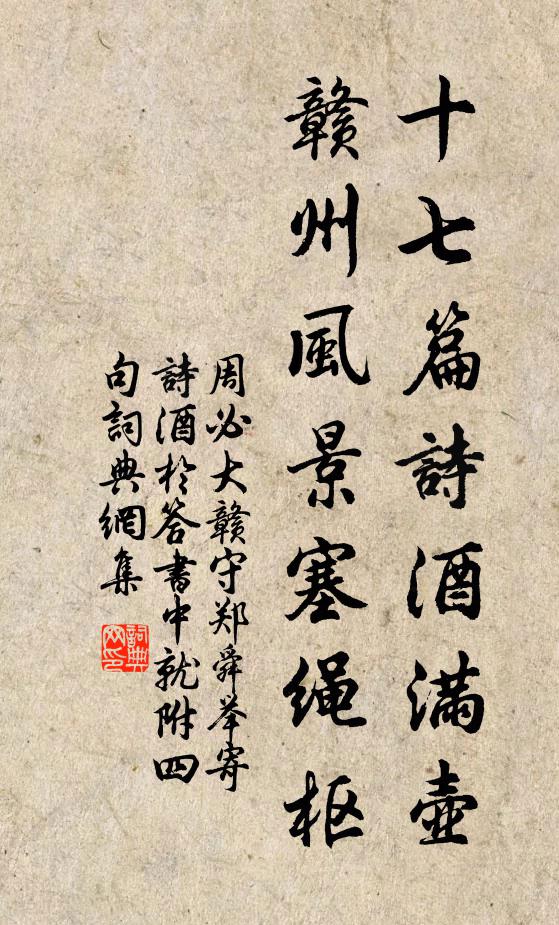 十七篇詩酒滿壺
贛州風景塞绳枢
周必大贛守郑舜举寄
詩酒於答書中就附四
句詞典網集
詞典
网印